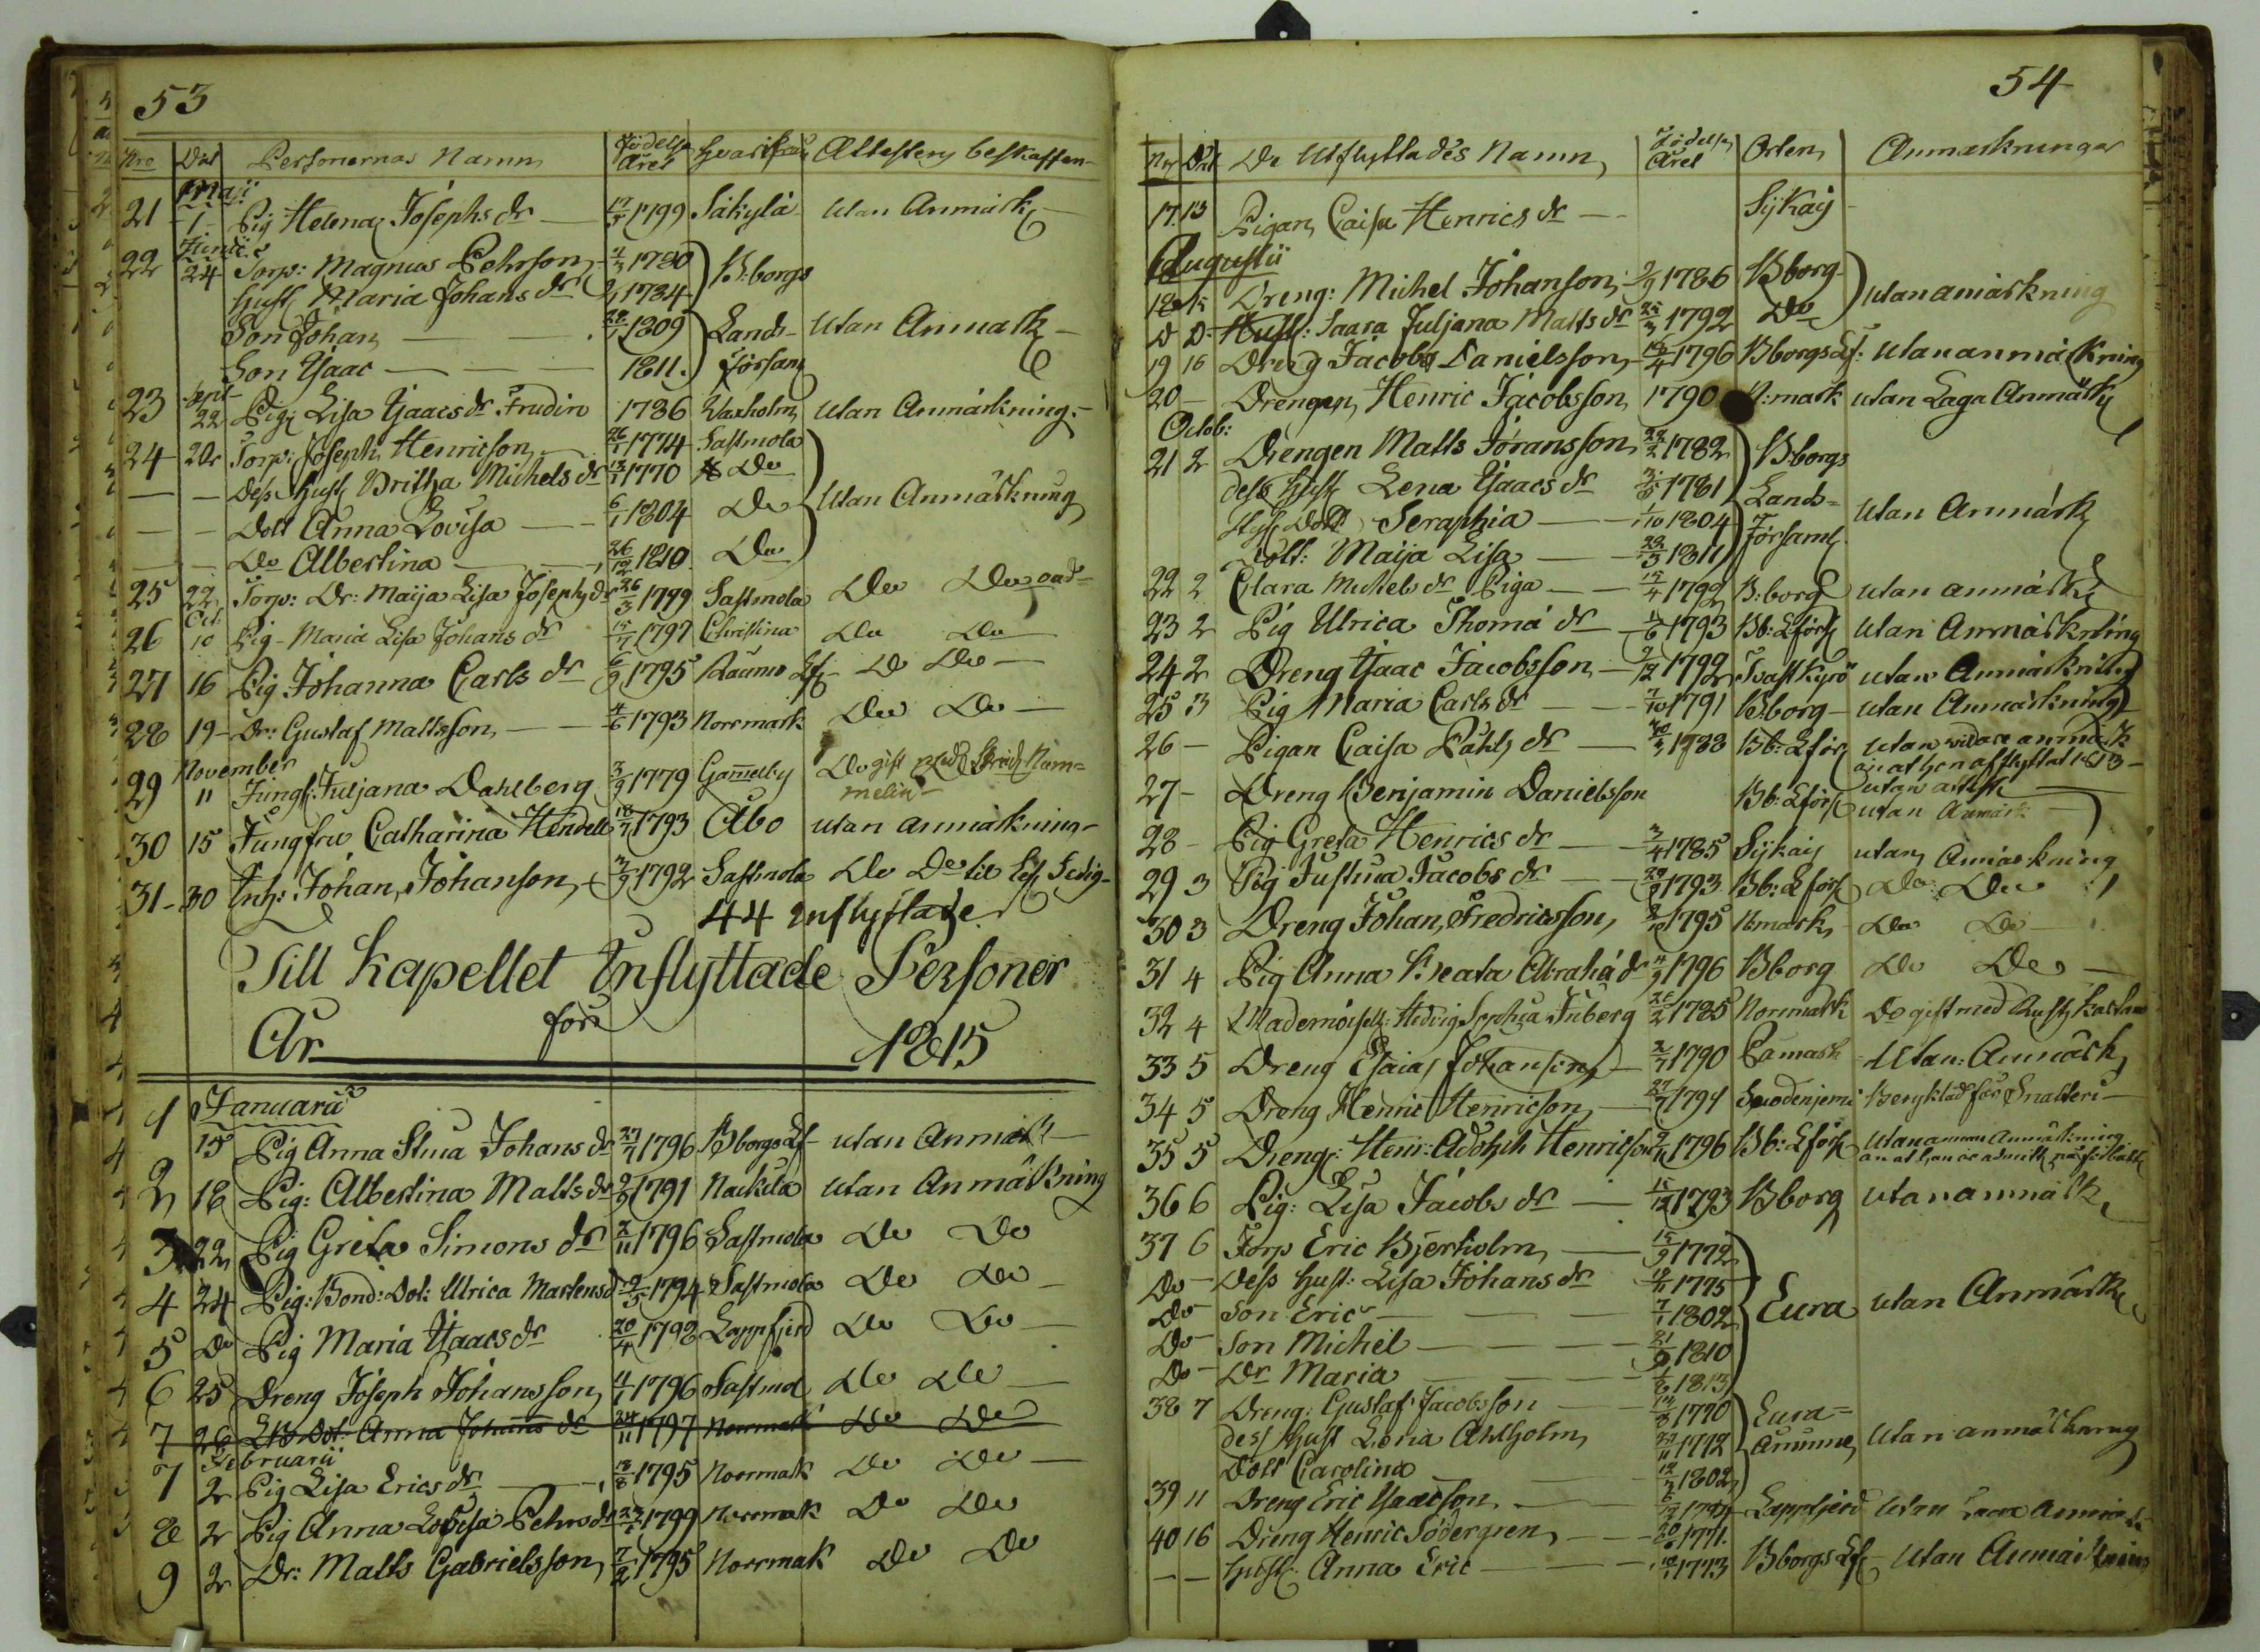 53
Nro Dat Personernas Namn Födelse Året Hvarifrån Attestens beskaffen-
Maji
21 1 Pig Helena Josephs dr 1799 Säkylä utan Anmärk
Junii
22 24 Torp: Magnus Pehrson 1780 B:borgs
Hust Maria Johans dr 1784
Son Johan 1809 Lands- utan Anmärk
Son Isaac 1811. församl
Sept
23 22 Pig Lisa Isaacs dr Frudin 1786 Waxholm utan Anmärkning
24 Torp: Joseph Henricson 26/1 1774 Sastmola
— — Dess Hust Britha Michels dr 1770 Do
— — Dott Anna Lovisa 6/1 1804 Do utan Anmärkning
— — Do Albertina 26/12 1810 Do
25 22 Torp: Dr: Maija Lisa Josephs dr 26/3 1799 Sastmola Do Do
Oct:
26 10 Pig Maria Lisa Johans dr 1797 Christina Do Do
27 16 Pig Johanna Carls dr 6/9 1795 Raumo Lf Do Do
28 19 Dr: Gustaf Mattsson 4/6 1793 Norrmark Do Do
November
29 11 Jungf: Juljana Dahlberg 3/9 1779 Gamelby Do gift med Num=
melin
30 15 Jungfru Catharina Hendell 18/7 1793 Åbo utan anmärkning
31 30 Inh: Johan Johanson 1792 Sastmola Do Do
44 inflyttade
Till Kapellet Inflyttade Personer
för
År 1815
Januarii
1 15 Pig Anna Stina Johans dr 27/7 1796 Bborgs Lf utan Anmärk
2 18 Pig: Albertina Matts dr 1791 Nackila utan Anmärkning
3 22 Pig Greta Simons dr 2/11 1796 Sastmola Do Do
4 24 Pig: Bond: Dot: Ulrica Martens d 9/5 1794 Sastmola Do Do
5 Do Pig Maria Isaacs dr 20/4 1798 Lappfjerd Do Do
6 25 Dreng Joseph Johansson 1796 Sastmol Do Do
7 28 Dot: Anna Johans dr 24/11 1797 Norrmark Do Do
Februarii
7 2 Pig Lisa Erics dr 1795 Norrmark Do Do
8 2 Pig Anna Lovisa Pehrs dr 1799 Norrmark Do Do
9 2 Dr: Matts Gabrielsson 7/2 1795 Norrmark Do Do
54
Nr Dat De Utflyttades Namn Födelse Året Orten Anmärkningar
17 13 Pigan Caisa Henrics dr Sijkaij
Augustii
18 15 Dreng: Michel Johanson 1786 Bborg utan anmärkning
D D Hust: Saara Juljana Matts dr 1792 Do
19 16 Dreng Jacob Danielsson 1796 Bborgs Lf: utan anmärkning
20 — Drengen Henric Jacobsson 1790 N:mark utan Laga Anmärk
Octob:
21 2 Drengen Matts Joransson 1782 B:borgs
dess Hust Lena Isaacs dr 1781 Lands=
Dott Seraphia 1/10 1804 församl utan Anmärk
Dott: Maija Lisa 1811
22 2 Clara Michels dr Piga 1792 B:borg utan anmärk
23 2 Pig Ulrica Thoma dr 1793 Bb: Lförs utan Anmärkning
24 2 Dreng Isaac Jacobsson 1792 Kyrö utan Anmärkning
25 3 Pig Maria Carls dr 7/10 1791 B:borg utan Anmärkning
26 — Pigan Caisa Påhls dr 1788 Bb: Lförs utan vidare anmärk
än at hon afflyttat 1813
27 — Dreng Benjamin Danielsson Bb: Lförs utan attest
utan Anmärk
28 — Pig Greta Henrics dr 3/4 1785 Sijkaij utan Anmärkning
29 3 Pig Justina Jacobs dr 1793 Bb: Lförs Do Do
30 3 Dreng Johan Fredricsson 1795 Nmark Do Do
31 4 Pig Anna Beata Abraha dr 1796 Bborg Do Do
32 4 Mademoisell: Hedvig Sophia Inberg 1785 Norrmark Do gift med
33 5 Dreng Esaias Johanson 1790 Påmark utan Anmärk
34 5 Dreng Henric Henricson 1791 för Snatteri
35 5 Dreng: Henr: Adolph Henricson 1796 Bb: Lförs utan annan Anmärkning
36 6 Pig: Lisa Jacobs dr 1793 Bborg utan anmärk
37 6 Torp Eric Bjerholm 15/9 1772
Do Dess Hust: Lisa Johans dr 1775
Do Son Eric 7/1 1802 Eura utan Anmärk
Do Son Michel 1810
Do Dr Maria 1813
38 7 Dreng: Gustaf Jacobsson 1770 Eura=
dess Hust Ahlholm 1772 åminne utan anmärkning
Dott Carolina 1802
39 11 Dreng Eric Isaacson Lappfjerd utan anmärk
40 16 Dreng Henric Södergren 1771
— — Hust Anna Eric 1773 Bborgs Lf utan Anmärkning